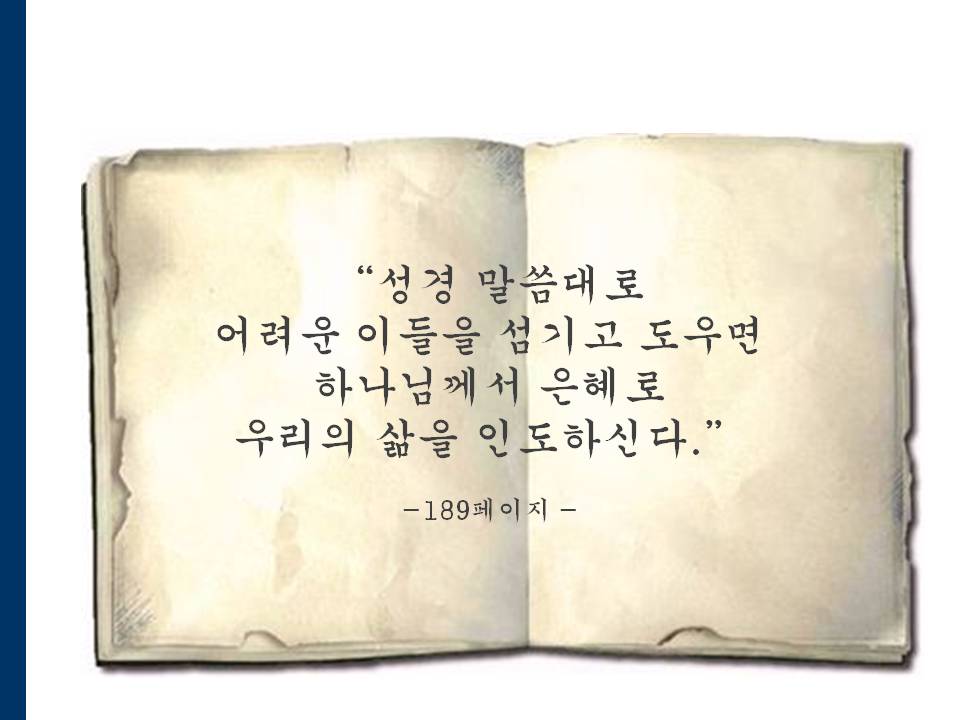 “성경 말씀대로
어려운 이들을 섬기고 도우면
하나님께서 은혜로
우리의 삶을 인도하신다.”
-189페이지 -